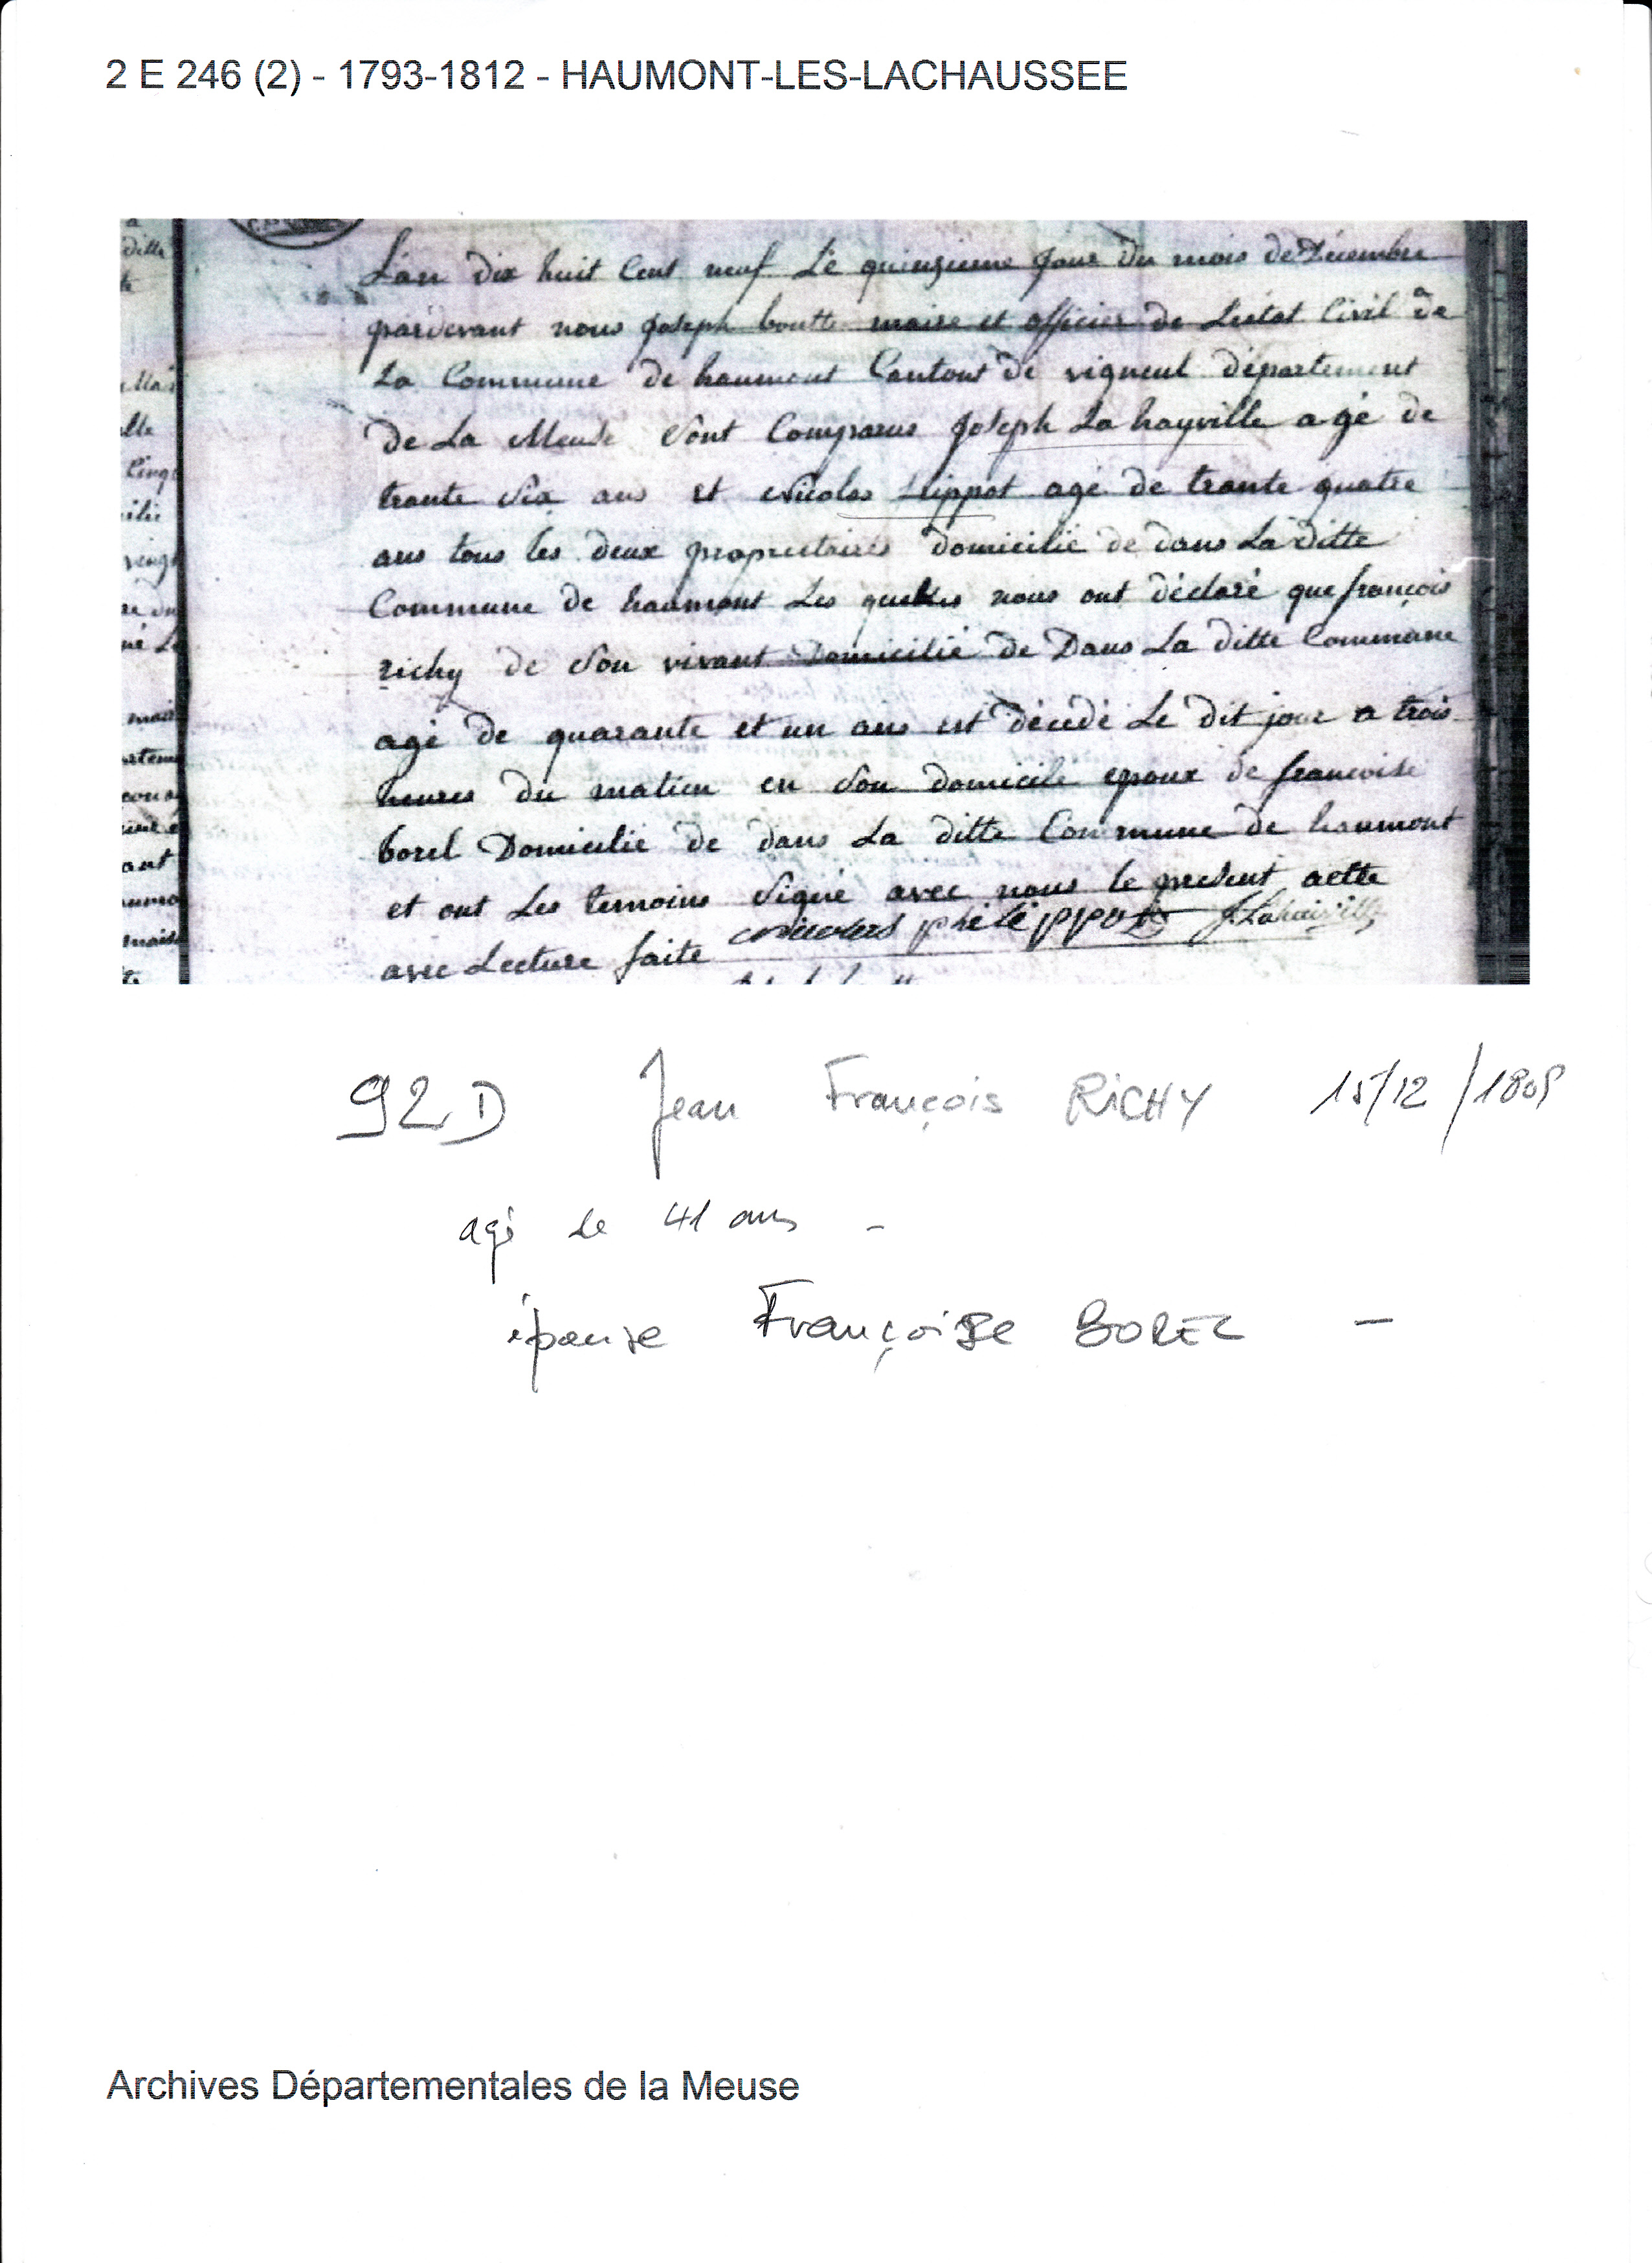 2 E 246 (2) - 1793-1812 - HAUMONT-LES-LACHAUSSEE
L'an dix huit Cent neuf Le quinzieme Jour du mois de Décembre
pardevant nous Joseph boutte maire et officier de L'état Civil de
La Commune de haumont Cantont de vigneul département
De La Meuse Sont Comparus Joseph La hayville agé de
trante Six ans et Nicolas agé de trante quatre
ans tous les deux proprietaires domicilié de dans La ditte
Commune de haumont Les quelles nous ont déclaré que françois
richy de Son vivant Domicilié de Dans La ditte Commune
agé de quarante et un ans est décédé Le dit jour a trois
heures du matien en Son domicile epoux de francoise
borel Domicilié de dans La ditte Commune de haumont
et ont Les temoins Signé avec nous le present actte
avec Lecture faite J. Lahaiville
92 D Jean François RICHY 15/12/1809
agé de 41 ans -
épouse Françoise BOREL -
Archives Départementales de la Meuse